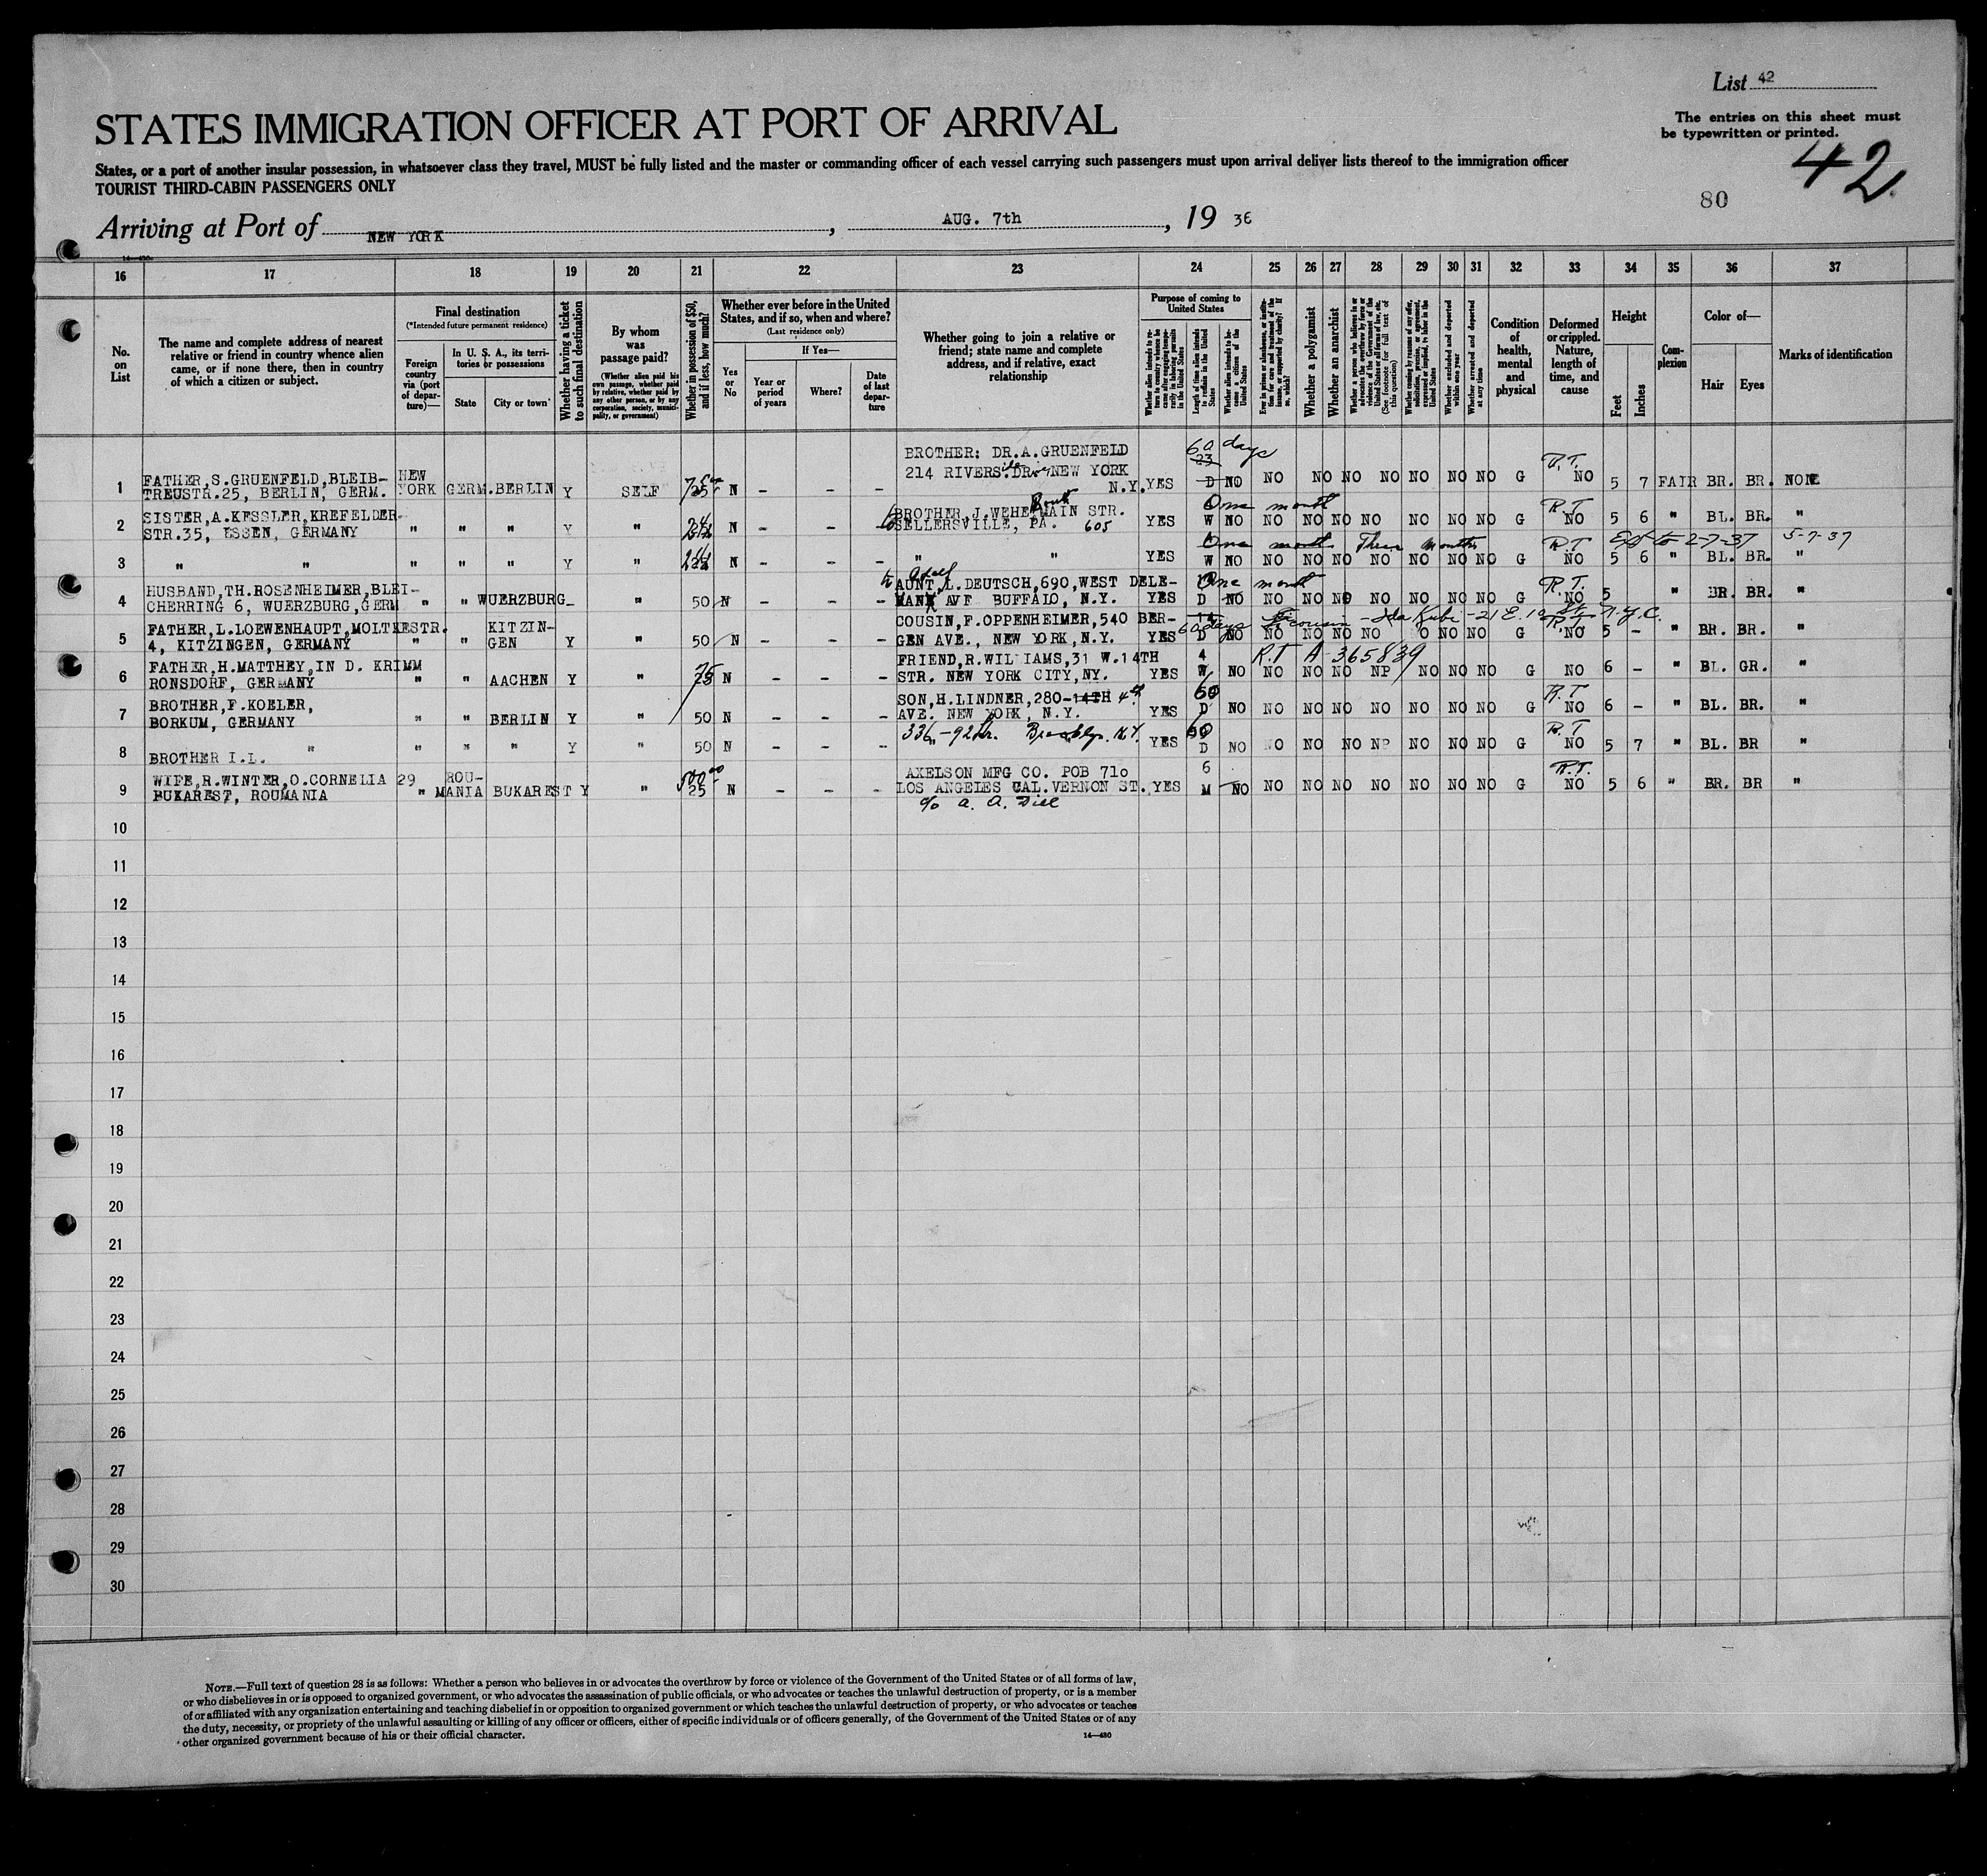 List 42
STATES IMMIGRATION OFFICER AT PORT OF ARRIVAL
The entries on this sheet must
be typewritten or printed.
States, or a port of another insular possession, in whatsoever class they travel, MUST be fully listed and the master or commanding officer of each vessel carrying such passengers must upon arrival deliver lists thereof to the immigration officer
TOURIST THIRD-CABIN PASSENGERS ONLY
42
80
Arriving at Port of NEW YORK, AUG. 7th, 19 36
16 17 18 19 20 21 22 23 24 25 26 27 28 29 30 31 32 33 34 35 36 37
No. on List
The name and complete address of nearest relative or friend in country whence alien came, or if none there, then in country of which a citizen or subject.
Final destination
(*Intended future permanent residence)
Foreign country via (port of departure)—
In U. S. A., its territories or possessions
State
City or town
Whether having a ticket to such final destination
By whom was passage paid?
(Whether alien paid his own passage, whether paid by relative, whether paid by any other person, or by any corporation, society, municipality, or government)
Whether in possession of $50, and if less, how much?
Whether ever before in the United States, and if so, when and where?
(Last residence only)
Yes or No
If Yes—
Year or period of years
Where?
Date of last departure
Whether going to join a relative or friend; state name and complete address, and if relative, exact relationship
Purpose of coming to United States
Whether alien intends to return to country whence he came after engaging temporarily in laboring pursuits in the United States
Length of time alien intends to remain in the United States
Whether alien intends to become a citizen of the United States
Ever in prison or almshouse, or institution for care and treatment of the insane, or supported by charity? If so, which?
Whether a polygamist
Whether an anarchist
Whether a person who believes in or advocates the overthrow by force or violence of the Government of the United States or all forms of law, etc. (See footnote for full text of this question)
Whether coming by reasons of any offer, solicitation, promise, or agreement, expressed or implied, to labor in the United States
Whether excluded and deported within one year
Whether arrested and deported at any time
Condition of health, mental and physical
Deformed or crippled. Nature, length of time, and cause
Height
Feet
Inches
Complexion
Color of—
Hair
Eyes
Marks of identification
60 days
BROTHER: DR.A.GRUENFELD 23
1 FATHER,S.GRUENFELD,BLEIB- NEW 214 RIVERS. DR. NEW YORK R.T.
TREUSTR.25, BERLIN, GERM. YORK GERM. BERLIN Y SELF 75 N - - - N.Y. YES D NO NO NO NO NO NO NO NO G NO 5 7 FAIR BR. BR. NONE
2 SISTER,A.KESSLER,KREFELDER- BROTHER,J.WEHE MAIN STR. One month R.T
STR.35, ESSEN, GERMANY " " " Y " N - - - SELLERSVILLE, PA. 605 YES W NO NO NO NO NO NO NO NO G NO 5 6 " BL. BR. "
One month Three months R.T Ext to 2-7-37 5-7-37
3 " " " " " Y " N - - - " " YES W NO NO NO NO NO NO NO NO G NO 5 6 " BL. BR. "
4 HUSBAND,TH.ROSENHEIMER,BLEI- AUNT, L. DEUTSCH,690,WEST DELE- One month R.T.
CHERRING 6, WUERZBURG,GERM " " WUERZBURG - " 50 N - - - AVE BUFFALO, N.Y. YES D NO NO NO NO NO NO NO NO G NO 5 " BR. BR. "
5 FATHER,L.LOEWENHAUPT,MOLTKESTR. KITZIN- COUSIN,F.OPPENHEIMER,540 BER- 14 cousin - Ida Kubi - 21 E. 10 St. N.Y.C.
4, KITZINGEN, GERMANY " " GEN Y " 50 N - - - GEN AVE., NEW YORK, N.Y. YES 60 days D NO NO NO NO NO O NO NO G R.T. NO 5 - " BR. BR. "
6 FATHER,H.MATTHEY,IN D. KRIMM FRIEND,R.WILLIAMS,31 W.14TH 4 R.T A-365839
RONSDORF, GERMANY " " AACHEN Y " 25 N - - - STR. NEW YORK CITY, NY. YES W NO NO NO NO NO NO NO NO G NO 6 - " BL. GR. "
7 BROTHER,F.KOELER, SON,H.LINDNER,280-14TH 4th 60 R.T
BORKUM, GERMANY " " BERLIN Y " 50 N - - - AVE. NEW YORK, N.Y. YES D NO NO NO NO NO NO NO NO G NO 6 - " BL. BR. "
8 " 336-92 Str. Brooklyn. N.Y. 60 R.T
BROTHER I.L. " " " Y " 50 N - - - " YES D NO NO NO NO NO NO NO NO G NO 5 7 " BL. BR "
9 WIFE,R.WINTER,O.CORNELIA 29 ROU- 500.00 AXELSON MFG CO. POB 710 6 R.T.
BUKAREST, ROUMANIA " MANIA BUKAREST Y " 25 N - - - LOS ANGELES CAL.VERNON ST. YES M NO NO NO NO NO NO NO NO G NO 5 6 " BR. BR "
c/o A. A. Dill
10
11
12
13
14
15
16
17
18
19
20
21
22
23
24
25
26
27
28
29
30
NOTE.—Full text of question 28 is as follows: Whether a person who believes in or advocates the overthrow by force or violence of the Government of the United States or of all forms of law,
or who disbelieves in or is opposed to organized government, or who advocates the assassination of public officials, or who advocates or teaches the unlawful destruction of property, or is a member
of or affiliated with any organization entertaining and teaching disbelief in or opposition to organized government or which teaches the unlawful destruction of property, or who advocates or teaches
the duty, necessity, or propriety of the unlawful assaulting or killing of any officer or officers, either of specific individuals or of officers generally, of the Government of the United States or of any
other organized government because of his or their official character.
14—430